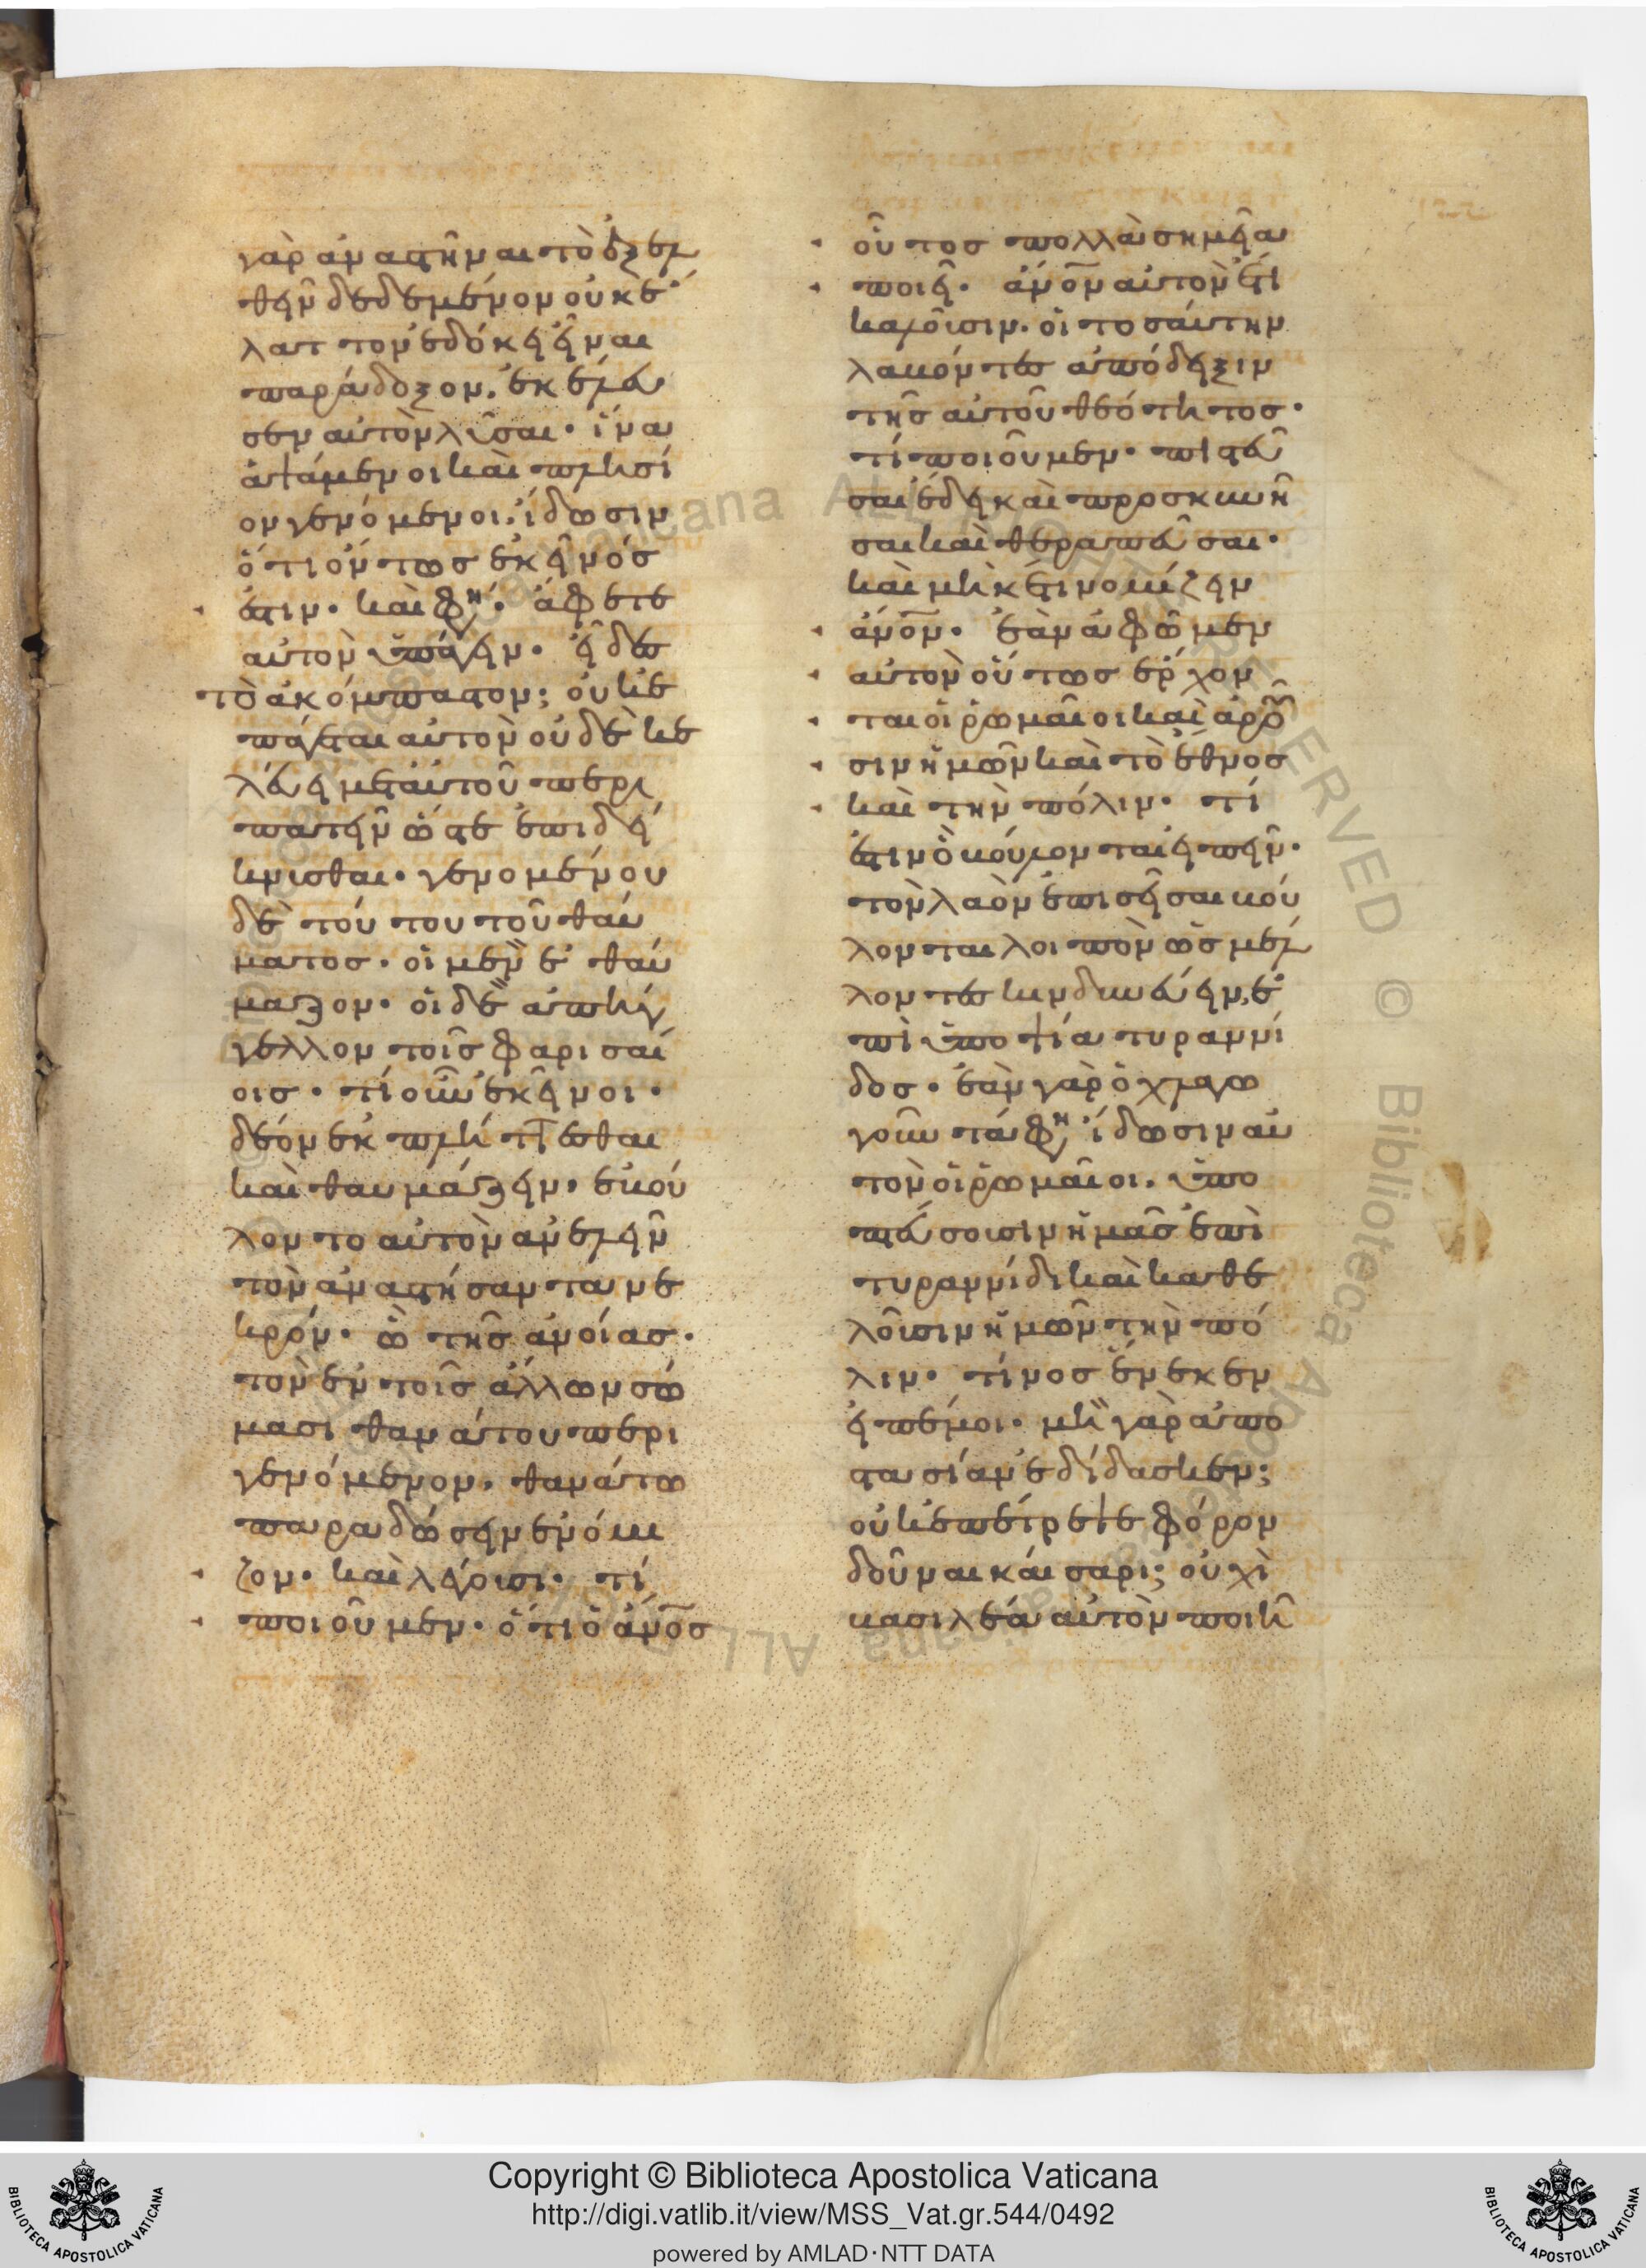 γὰρ ἀναστῆναι τὸ ἐξελ
θεῖν δεδεμένον οὐκ ἔ
λαττον ἐδόκει εἶναι
παράδοξον. ἐκέλευ
σεν αὐτὸν λῦσαι· ἵνα
ἁψάμενοι καὶ πλησί
ον γενόμενοι. ἴδωσιν
ὅτι ὄντως ἐκεῖνός
ἐστιν· καὶ φη· ἄφετε
αὐτὸν ὑπάγειν· εἶδες
τὸ ἀκόμπαστον; οὐκ ἐ
πάγεται αὐτὸν οὐδὲ κε
λεύει μετ' αὐτοῦ περι
πατεῖν ὥστε ἐπιδεί
κνυσθαι· γενομένου
δὲ τούτου τοῦ θαύ
ματος· οἱ μὲν ἐθαύ
μαζον· οἱ δὲ ἀπήγ
γελλον τοῖς φαρισαί
οις· τί οὖν ἐκεῖνοι·
δέον ἐκπλήττεσθαι
καὶ θαυμάζειν· ἐβού
λοντο αὐτὸν ἀνελεῖν
τὸν ἀναστήσαντα νε
κρόν· ὢ τῆς ἀνοίας·
τὸν ἐν τοῖς ἄλλων σώ
μασι θανάτου περι
γενόμενον. θανάτω
παραδώσειν ἐνόμι
ζον· καὶ λέγουσι· τί
ποιοῦμεν· ὅτι ὁ ἄνος
οὗτος πολλὰ σημεῖα
ποιεῖ· ἄνον αὐτὸν ἔτι
καλοῦσιν· οἱ τοσαύτην
λαβόντες ἀπόδειξιν
τῆς αὐτοῦ θεότητος·
τί ποιοῦμεν· πιστεῦ
σαι ἔδει καὶ προσκυνῆ
σαι καὶ θεραπεῦσαι·
καὶ μηκέτι νομίζειν
ἄνον· ἐὰν ἀφῶμεν
αὐτὸν οὕτως ἔρχον
ται οἱ ῥωμαῖοι καὶ ἀροῦ
σιν ἡμῶν καὶ τὸ ἔθνος
καὶ τὴν πόλιν· τί
ἐστιν ὃ βούλονται εἰπεῖν·
τὸν λαὸν ἐπισεῖσαι βού
λονται λοιπὸν ὡς μέλ
λοντες κινδυνεύειν, ἐ
πὶ ὑποψία τυραννί
δος· ἐὰν γὰρ ὀχλαγω
γοῦντα φη ἴδωσιν αὐ
τὸν οἱ ῥωμαῖοι. ὑπο
πτεύσουσιν ἡμᾶς ἐπὶ
τυραννίδι καὶ καθε
λοῦσιν ἡμῶν τὴν πό
λιν· τίνος ἕνεκεν
εἰπέ μοι· μὴ γὰρ ἀπο
στασίαν ἐδίδασκεν;
οὐκ ἐπέτρεψε φόρον
δοῦναι καίσαρι; οὐχὶ
βασιλέα αὐτὸν ποιῆ